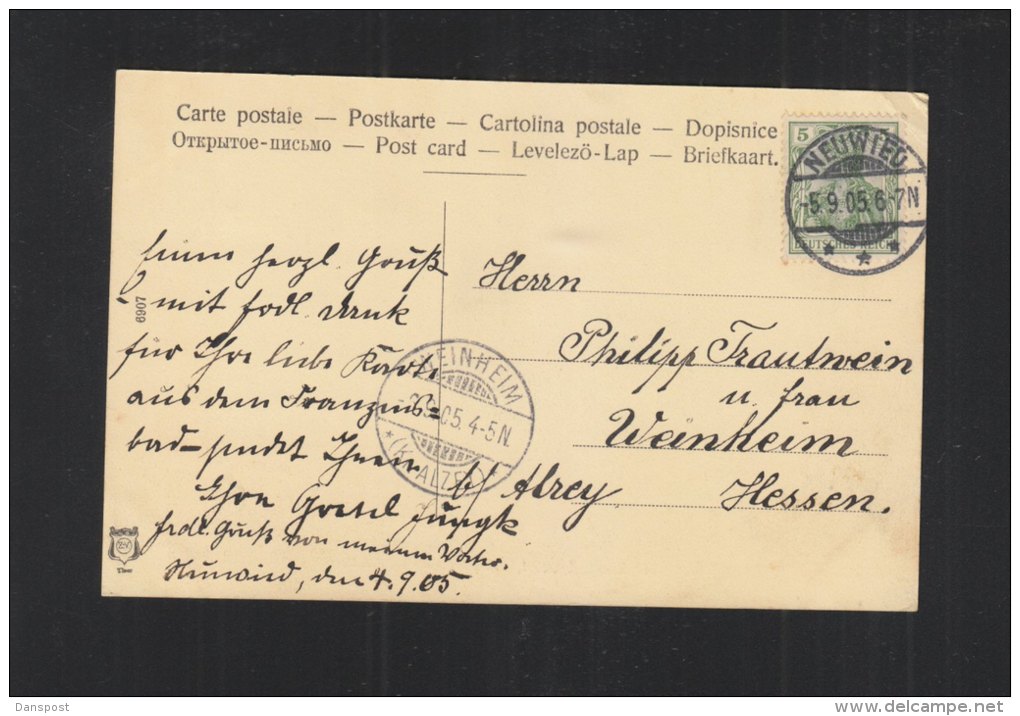 Carte postale — Postkarte — Cartolina postale — Dopisnice
Открытое-письмо — Post card — Levelező-Lap — Briefkaart.
5
DEUTSCHES REICH
NEUWIED
-5.9.05.6-7N
Einen herzl. Gruß
mit frdl. Dank
für Ihre liebe Karte
aus dem Franzens=
bad sendet Ihnen
Ihre Gretel Jungk
frdl. Gruß von meinem Vater.
Neuwied, den 4.9.05.
6907
WEINHEIM
.9.05.4-5N.
(Kr. ALZEY)
Herrn
Philipp Trautwein
u. Frau
Weinheim
b/ Alzey Hessen.
Danspost
delcampe.net